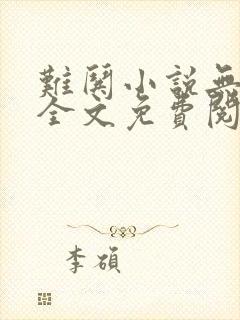 難關小說無
全文免費閱
李碩